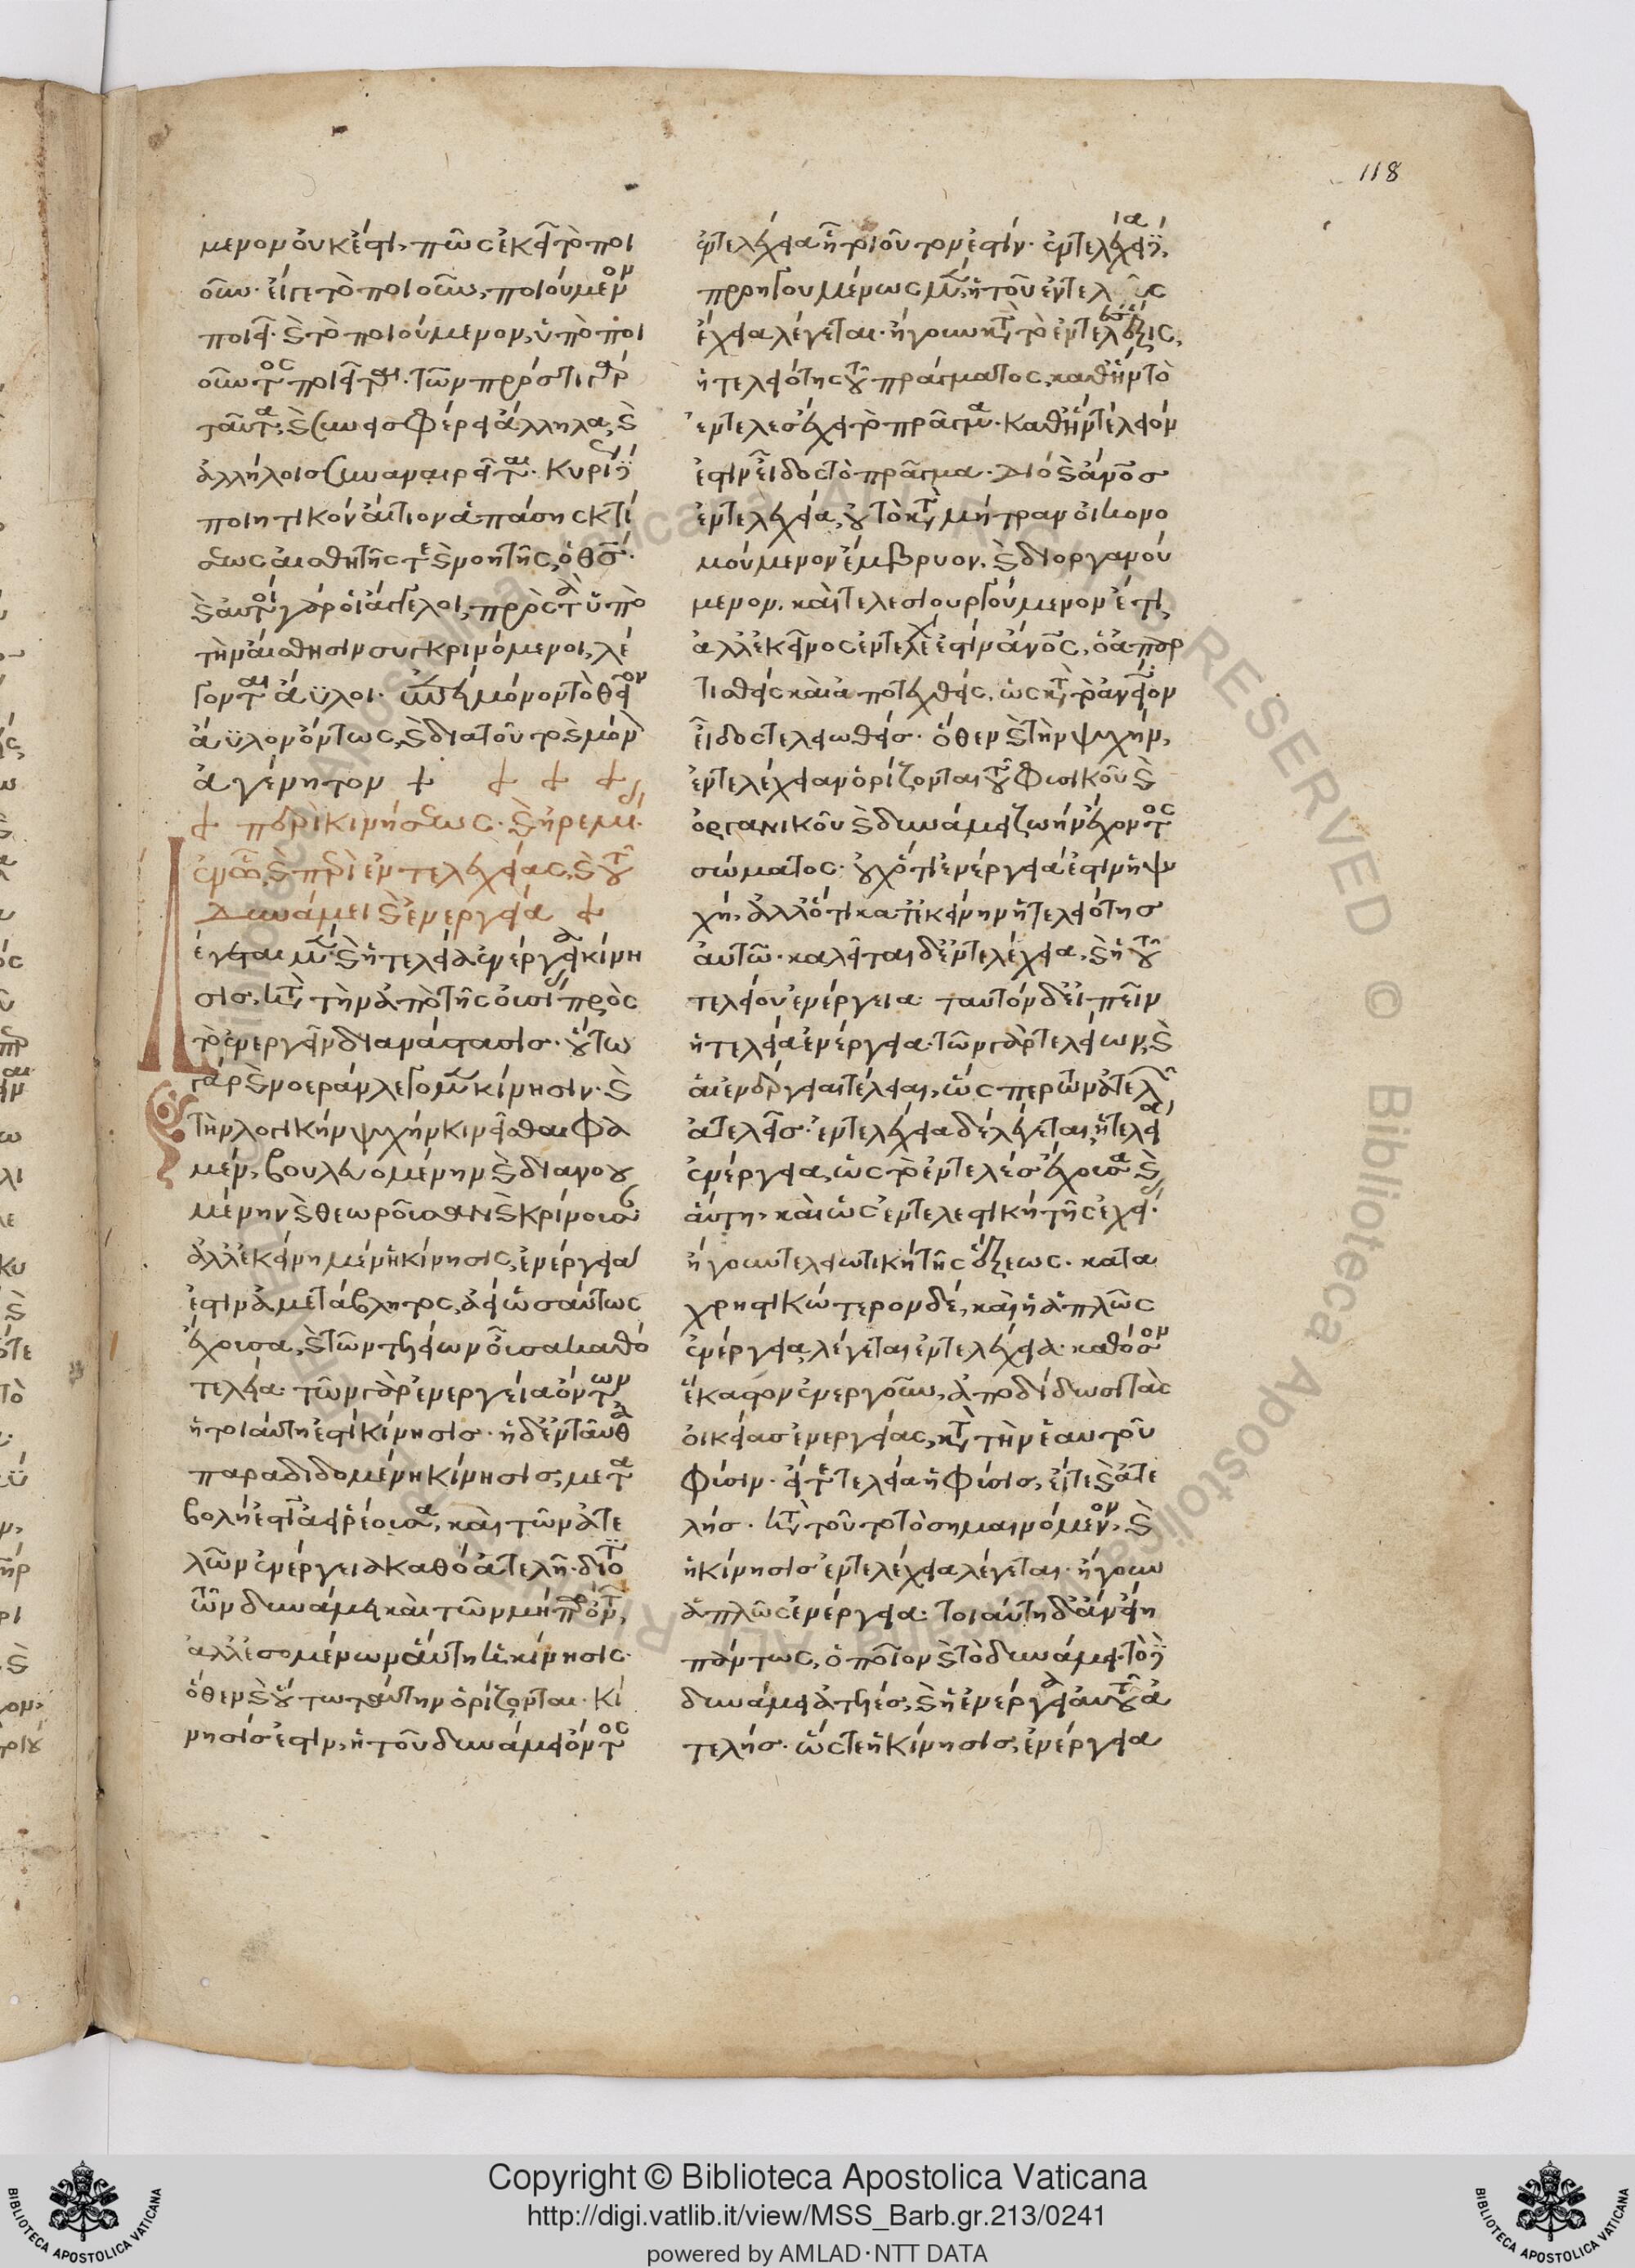 118
μενον οὐκ ἔστι, πῶς ἐκεῖ τὸ ποι
οῦν· εἴγε τὸ ποιοῦν, ποιούμενον
ποιεῖ· καὶ τὸ ποιούμενον, ὑπὸ ποι
οῦντος ποιεῖται· τῶν πρός τι γὰρ
ταῦτα, καὶ συνεισφέρει ἄλληλα, καὶ
ἀλλήλοις συναναιρεῖται· κυρι
ποιητικὸν αἴτιον ἁπάσης κτί
σεως αἰσθητῆς τε καὶ νοητῆς, ὁ θεός·
καὶ αὐτοὶ γὰρ οἱ ἄγγελοι, πρὸς τὰ ὑπὸ
τὴν αἴσθησιν συγκρινόμενοι, λέ
γονται ἄϋλοι· μόνον τὸ θεῖον
ἄϋλον ὄντως, καὶ διατοῦτο καὶ μόν
ἀγένητον + + + +
+ περὶ κινήσεως· καὶ ἠρεμι·
ἐν ᾧ καὶ περὶ ἐντελεχείας, καὶ τοῦ
δυνάμει καὶ ἐνεργείᾳ +
Λέγεται μὲν καὶ ἡ τελεία ἐνέργεια κίνη
σις, κατὰ τὴν ἀπὸ τῆς οὐσί πρὸς
τὸ ἐνεργεῖν διανάστασιν· οὕτω
γὰρ καὶ νοερὰν λέγομεν κίνησιν· καὶ
τὴν λογικὴν ψυχὴν κινεῖσθαι φα
μέν, βουλευομένην καὶ διανοου
μένην καὶ θεωροῦσαν καὶ κρίνουσαν·
ἀλλ' ἐκείνη μὲν ἡ κίνησις, ἐνέργειά
ἐστιν ἀμετάβλητος, ἀεὶ ὡσαύτως
ἔχουσα, καὶ τῶν τελείων οὖσα καθὸ
τέλεια· τῶν γὰρ ἐνεργείᾳ ὄντων,
ἡ τοιαύτη ἐστὶ κίνησις· ἡ δ' ἐνταῦθα
παραδιδομένη κίνησις, μετα
βολή ἐστιν ἀεὶ ῥέουσα, καὶ τῶν ἀτε
λῶν ἐνέργεια καθὸ ἀτελῆ·
τῶν δυνάμει, καὶ τῶν μήπω ὄντων,
ἀλλ' ἐσομένων αὕτη ἡ κίνησις·
ὅθεν καὶ οὕτω ταύτην ὁρίζονται· κί
νησίς ἐστιν, ἡ τοῦ δυνάμει ὄντος
ἐντελέχεια ᾗ τοιοῦτον ἐστίν· ἐντελέχεια
προηγουμένως μὲν, ἡ τοῦ ἐντελ
ἔχεια λέγεται· ἤγουν κατὰ τὸ ἐντελὲς ἕξις,
ἡ τελειότης τοῦ πράγματος, καθ' ἣν τὸ
ἐντελὲς ἔχει τὸ πρᾶγμα· καθ' ἣν τέλειόν
ἐστιν εἶδος τὸ πρᾶγμα· διὸ καὶ ἄνθρωπος
ἐντελεχείᾳ, οὐ τὸ κατὰ μήτραν οἰκονο
μούμενον ἔμβρυον, καὶ διοργανού
μενον, καὶ τελεσιουργούμενον ἔτι,
ἀλλ' ἐκεῖνος ἐντελεχ ἐστὶν ἄνθρωπος, ὁ ἀπαρ
τισθεὶς καὶ ἀποτεχθείς, ὡς κατὰ τὸ ἀνθρώπειον
εἶδος τελειωθείς· ὅθεν καὶ τὴν ψυχήν,
ἐντελέχειαν ὁρίζονται τοῦ φυσικοῦ καὶ
ὀργανικοῦ καὶ δυνάμει ζωὴν ἔχοντος
σώματος· οὐχ ὅτι ἐνέργεια ἐστὶν ἡ ψυ
χή, ἀλλ' ὅτι κατ' ἐκείνην ἡ τελειότης
αὐτῶ· καλεῖται δ' ἐντελέχεια, καὶ ἡ τοῦ
τελείου ἐνέργεια· ταυτὸν δ' εἰπεῖν
ἡ τελεία ἐνέργεια· τῶν γὰρ τελείων, καὶ
αἱ ἐνέργειαι τέλειαι, ὥσπερ τῶν ἀτελῶν
ἀτελεῖς· ἐντελέχεια δὲ λέγεται, ἡ τελεία
ἐνέργεια, ὡς τὸ ἐντελὲς ἔχουσα καὶ
αὕτη, καὶ ὡς ἐντελεστικὴ τῆς ἐχεί·
ἤγουν τελειωτικὴ τῆς ἕξεως· κατα
χρηστικώτερον δέ, καὶ ἡ ἁπλῶς
ἐνέργεια, λέγεται ἐντελέχεια· καθόσον
ἕκαστον ἐνεργοῦν, ἀποδίδωσι τὰς
οἰκείας ἐνεργείας, κατὰ τὴν ἑαυτοῦ
φύσιν· εἴτε τελεία ἡ φύσις, εἴτε καὶ ἀτε
λής· κατὰ τοῦτο τὸ σημαινόμενον, καὶ
ἡ κίνησις ἐντελέχεια λέγεται· ἤγουν
ἁπλῶς ἐνέργεια· τοιαύτη δ' ἂν εἴη
πάντως, ὁποῖον καὶ τὸ δυνάμει· τὸ
δυνάμει ἀτελές, καὶ ἡ ἐνέργεια αὐτοῦ ἀ
τελής· ὥστε ἡ κίνησις, ἐνέργεια
Copyright © Biblioteca Apostolica Vaticana
http://digi.vatlib.it/view/MSS_Barb.gr.213/0241
powered by AMLAD·NTT DATA
BIBLIOTECA APOSTOLICA VATICANA
BIBLIOTECA APOSTOLICA VATICANA